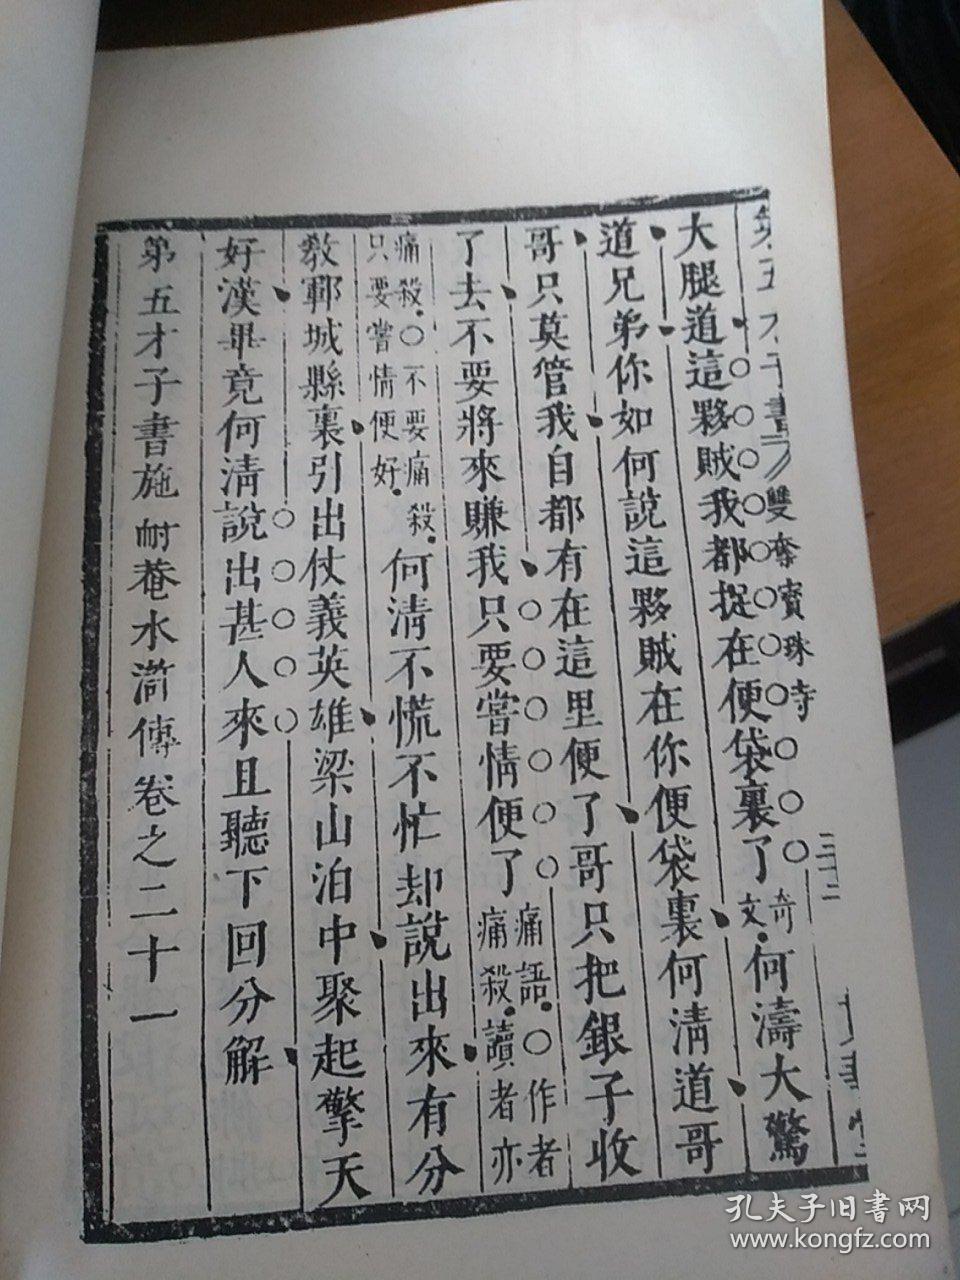 第五才子書 雙奪寶珠寺
大腿道這夥賊我都捉在便袋裏了奇文何濤大驚
道兄弟你如何說這夥賊在你便袋裏何淸道哥
哥只莫管我自都有在這里便了哥只把銀子收
了去不要將來賺我只要嘗情便了痛語○作者痛殺讀者亦
痛殺○不要痛殺只要嘗情便好何淸不慌不忙却說出來有分
敎鄆城縣裏引出仗義英雄梁山泊中聚起擎天
好漢畢竟何淸說出甚人來且聽下回分解
第五才子書施耐菴水滸傳卷之二十一
孔夫子旧書网
www.kongfz.com